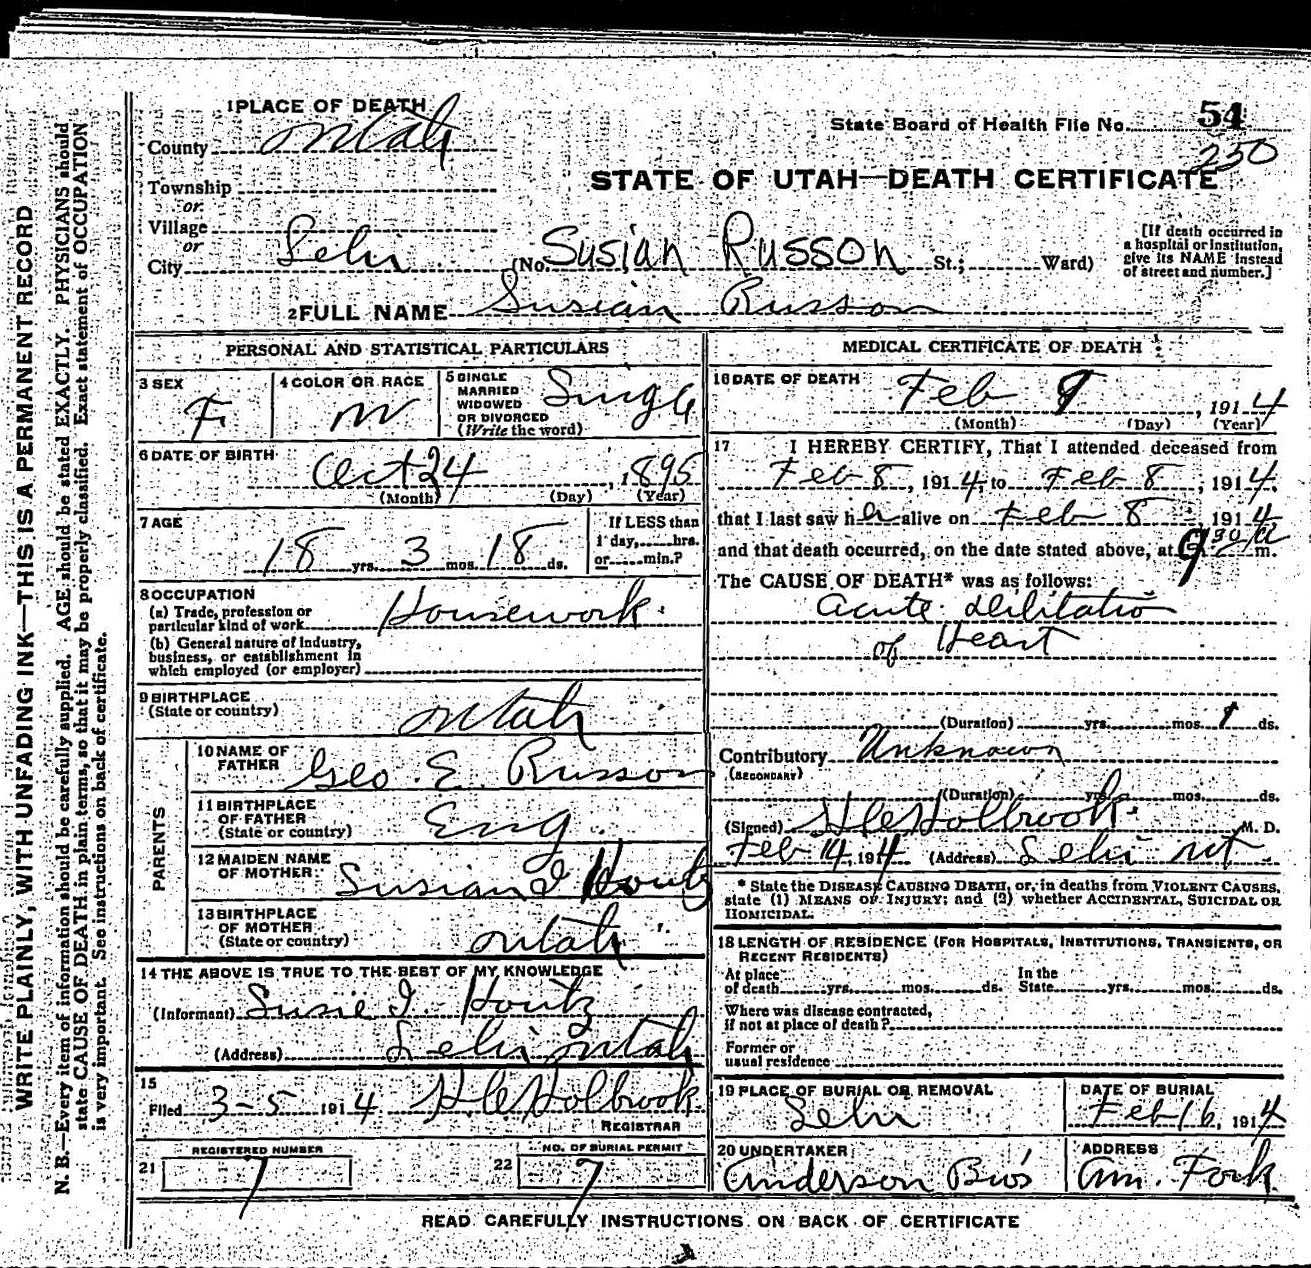 WRITE PLAINLY, WITH UNFADING INK—THIS IS A PERMANENT RECORD
N. B.—Every item of information should be carefully supplied. AGE should be stated EXACTLY. PHYSICIANS should
state CAUSE OF DEATH in plain terms, so that it may be properly classified. Exact statement of OCCUPATION
is very important. See instructions on back of certificate.
1 PLACE OF DEATH
County Utah
State Board of Health File No. 54
250
STATE OF UTAH—DEATH CERTIFICATE
Township
or
Village
or
City Lehi (No. Susian Russon St.; Ward)
[If death occurred in
a hospital or institution,
give its NAME instead
of street and number.]
2 FULL NAME Susian Russon
PERSONAL AND STATISTICAL PARTICULARS
3 SEX
F
4 COLOR OR RACE
W
5 SINGLE
MARRIED
WIDOWED
OR DIVORCED
(Write the word)
Single
6 DATE OF BIRTH
Oct 24, 1895
(Month) (Day) (Year)
7 AGE
18 yrs. 3 mos. 18 ds.
If LESS than
1 day, hrs.
or min.?
8 OCCUPATION
(a) Trade, profession or
particular kind of work Housework
(b) General nature of industry,
business, or establishment in
which employed (or employer)
9 BIRTHPLACE
(State or country)
Utah
PARENTS
10 NAME OF
FATHER Geo E. Russon
11 BIRTHPLACE
OF FATHER
(State or country) Eng
12 MAIDEN NAME
OF MOTHER Susian I Houtz
13 BIRTHPLACE
OF MOTHER
(State or country) Utah
14 THE ABOVE IS TRUE TO THE BEST OF MY KNOWLEDGE
(Informant) Susie I. Houtz
(Address) Lehi Utah
15
Filed 3-5 1914 Holbrook
REGISTRAR
REGISTERED NUMBER
21 7
NO. OF BURIAL PERMIT
22 7
MEDICAL CERTIFICATE OF DEATH
16 DATE OF DEATH
Feb 9, 1914
(Month) (Day) (Year)
17 I HEREBY CERTIFY, That I attended deceased from
Feb 8, 1914, to Feb 8, 1914,
that I last saw h alive on Feb 8 1914
and that death occurred, on the date stated above, at 9 30/a m.
The CAUSE OF DEATH* was as follows:
acute
of Heart
(Duration) yrs. mos. 1 ds.
Contributory Unknown
(SECONDARY)
(Duration) yrs. mos. ds.
(Signed) Holbrook M. D.
Feb 14, 1914 (Address) Lehi Ut
* State the DISEASE CAUSING DEATH, or, in deaths from VIOLENT CAUSES,
state (1) MEANS OF INJURY; and (2) whether ACCIDENTAL, SUICIDAL OR
HOMICIDAL.
18 LENGTH OF RESIDENCE (FOR HOSPITALS, INSTITUTIONS, TRANSIENTS, OR
RECENT RESIDENTS)
At place
of death yrs. mos. ds.
In the
State yrs. mos. ds.
Where was disease contracted,
if not at place of death?
Former or
usual residence
19 PLACE OF BURIAL OR REMOVAL
Lehi
DATE OF BURIAL
Feb 16, 1914
20 UNDERTAKER
Anderson Bros
ADDRESS
Am. Fork
READ CAREFULLY INSTRUCTIONS ON BACK OF CERTIFICATE